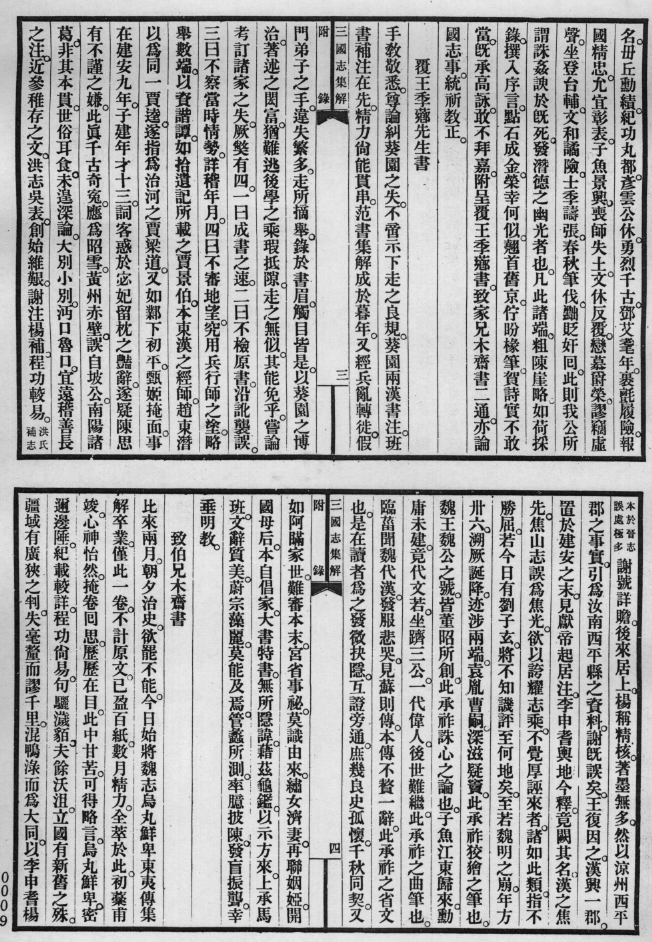 名毋丘勳績紀功丸都彥雲公休勇烈千古鄧艾耄年裹氈履險報
國精忠允宜彰表子魚景興喪師失土文休反覆戀慕爵榮謬竊虛
聲坐登台輔文和譎險士季譸張春秋筆伐黜貶奸回此則我公所
謂誅姦諛於旣死發潛德之幽光者也凡此諸端粗陳崖略如荷採
錄撰入序言點石成金榮幸何似翹首舊京佇盼椽筆賀詩實不敢
當旣承高詠敢不拜嘉附呈覆王季薌書致家兄木齋書二通亦論
國志事統祈敎正
覆王季薌先生書
手敎敬悉尊論糾葵園之失不啻示下走之良規葵園兩漢書注班
書補注在先精力尙能貫串范書集解成於暮年又經兵亂轉徙假
三國志集解
附錄
三
門弟子之手違失繁多走所摘舉錄於書眉觸目皆是以葵園之博
洽著述之閎富猶難逃後學之乘瑕抵隙走之無似其能免乎嘗論
考訂諸家之失厥獘有四一曰成書之速二曰不檢原書沿訛襲誤
三曰不察當時情勢詳稽年月四曰不審地望究用兵行師之塗略
舉數端以資諧譚如拾遺記所載之賈景伯本東漢之經師趙東潛
以爲同一賈逵遂指爲治河之賈梁道又如鄴下初平甄姬掩面事
在建安九年子建年才十三詞客惑於宓妃留枕之豔辭遂疑陳思
有不謹之嫌此眞千古奇寃應爲昭雪黃州赤壁誤自坡公南陽諸
葛非其本貫世俗耳食未遑深論大別小別沔口魯口宜遠稽善長
之注近參稚存之文洪志吳表創始維艱謝注楊補程功較易洪氏補志
本於晉志誤處極多謝號詳贍後來居上楊稱精核著墨無多然以涼州西平
郡之事實引爲汝南西平縣之資料謝旣誤矣王復因之漢興一郡
置於建安之末見獻帝起居注李申耆輿地今釋竟闕其名漢之焦
先焦山志誤爲焦光欲以誇耀志乘不覺厚誣來者諸如此類指不
勝屈若今日有劉子玄將不知譏評至何地矣至若魏明之崩年方
卅六溯厥誕降迹涉兩端袁胤曹嗣深滋疑竇此承祚狡獪之筆也
魏王魏公之號皆董昭所創此承祚誅心之論也子魚江東歸來勳
庸未建竟代文若坐躋三公一代偉人後世難繼此承祚之曲筆也
臨菑聞魏代漢發服悲哭見蘇則傳本傳不贅一辭此承祚之省文
也是在讀者爲之發微抉隱互證旁通庶幾良史孤懷千秋同契又
三國志集解
附錄
四
如阿瞞家世難審本末宮省事祕莫識由來繡女濟妻再聯姻婭開
國母后本自倡家大書特書無所隱諱藉茲龜鑑以示方來上承馬
班文辭質美蔚宗藻麗莫能及焉管蠡所測率臆披陳發盲振聾幸
垂明敎
致伯兄木齋書
比來兩月朝夕治史欲罷不能今日始將魏志烏丸鮮卑東夷傳集
解卒業僅此一卷不計原文已盈百紙數月精力全萃於此初藁甫
竣心神怡然掩卷回思歷歷在目此中甘苦可得略言烏丸鮮卑密
邇邊陲紀載較詳程功尙易句驪濊貊夫餘沃沮立國有新舊之殊
疆域有廣狹之判失毫釐而謬千里混鴨淥而爲大同以李申耆楊
0009